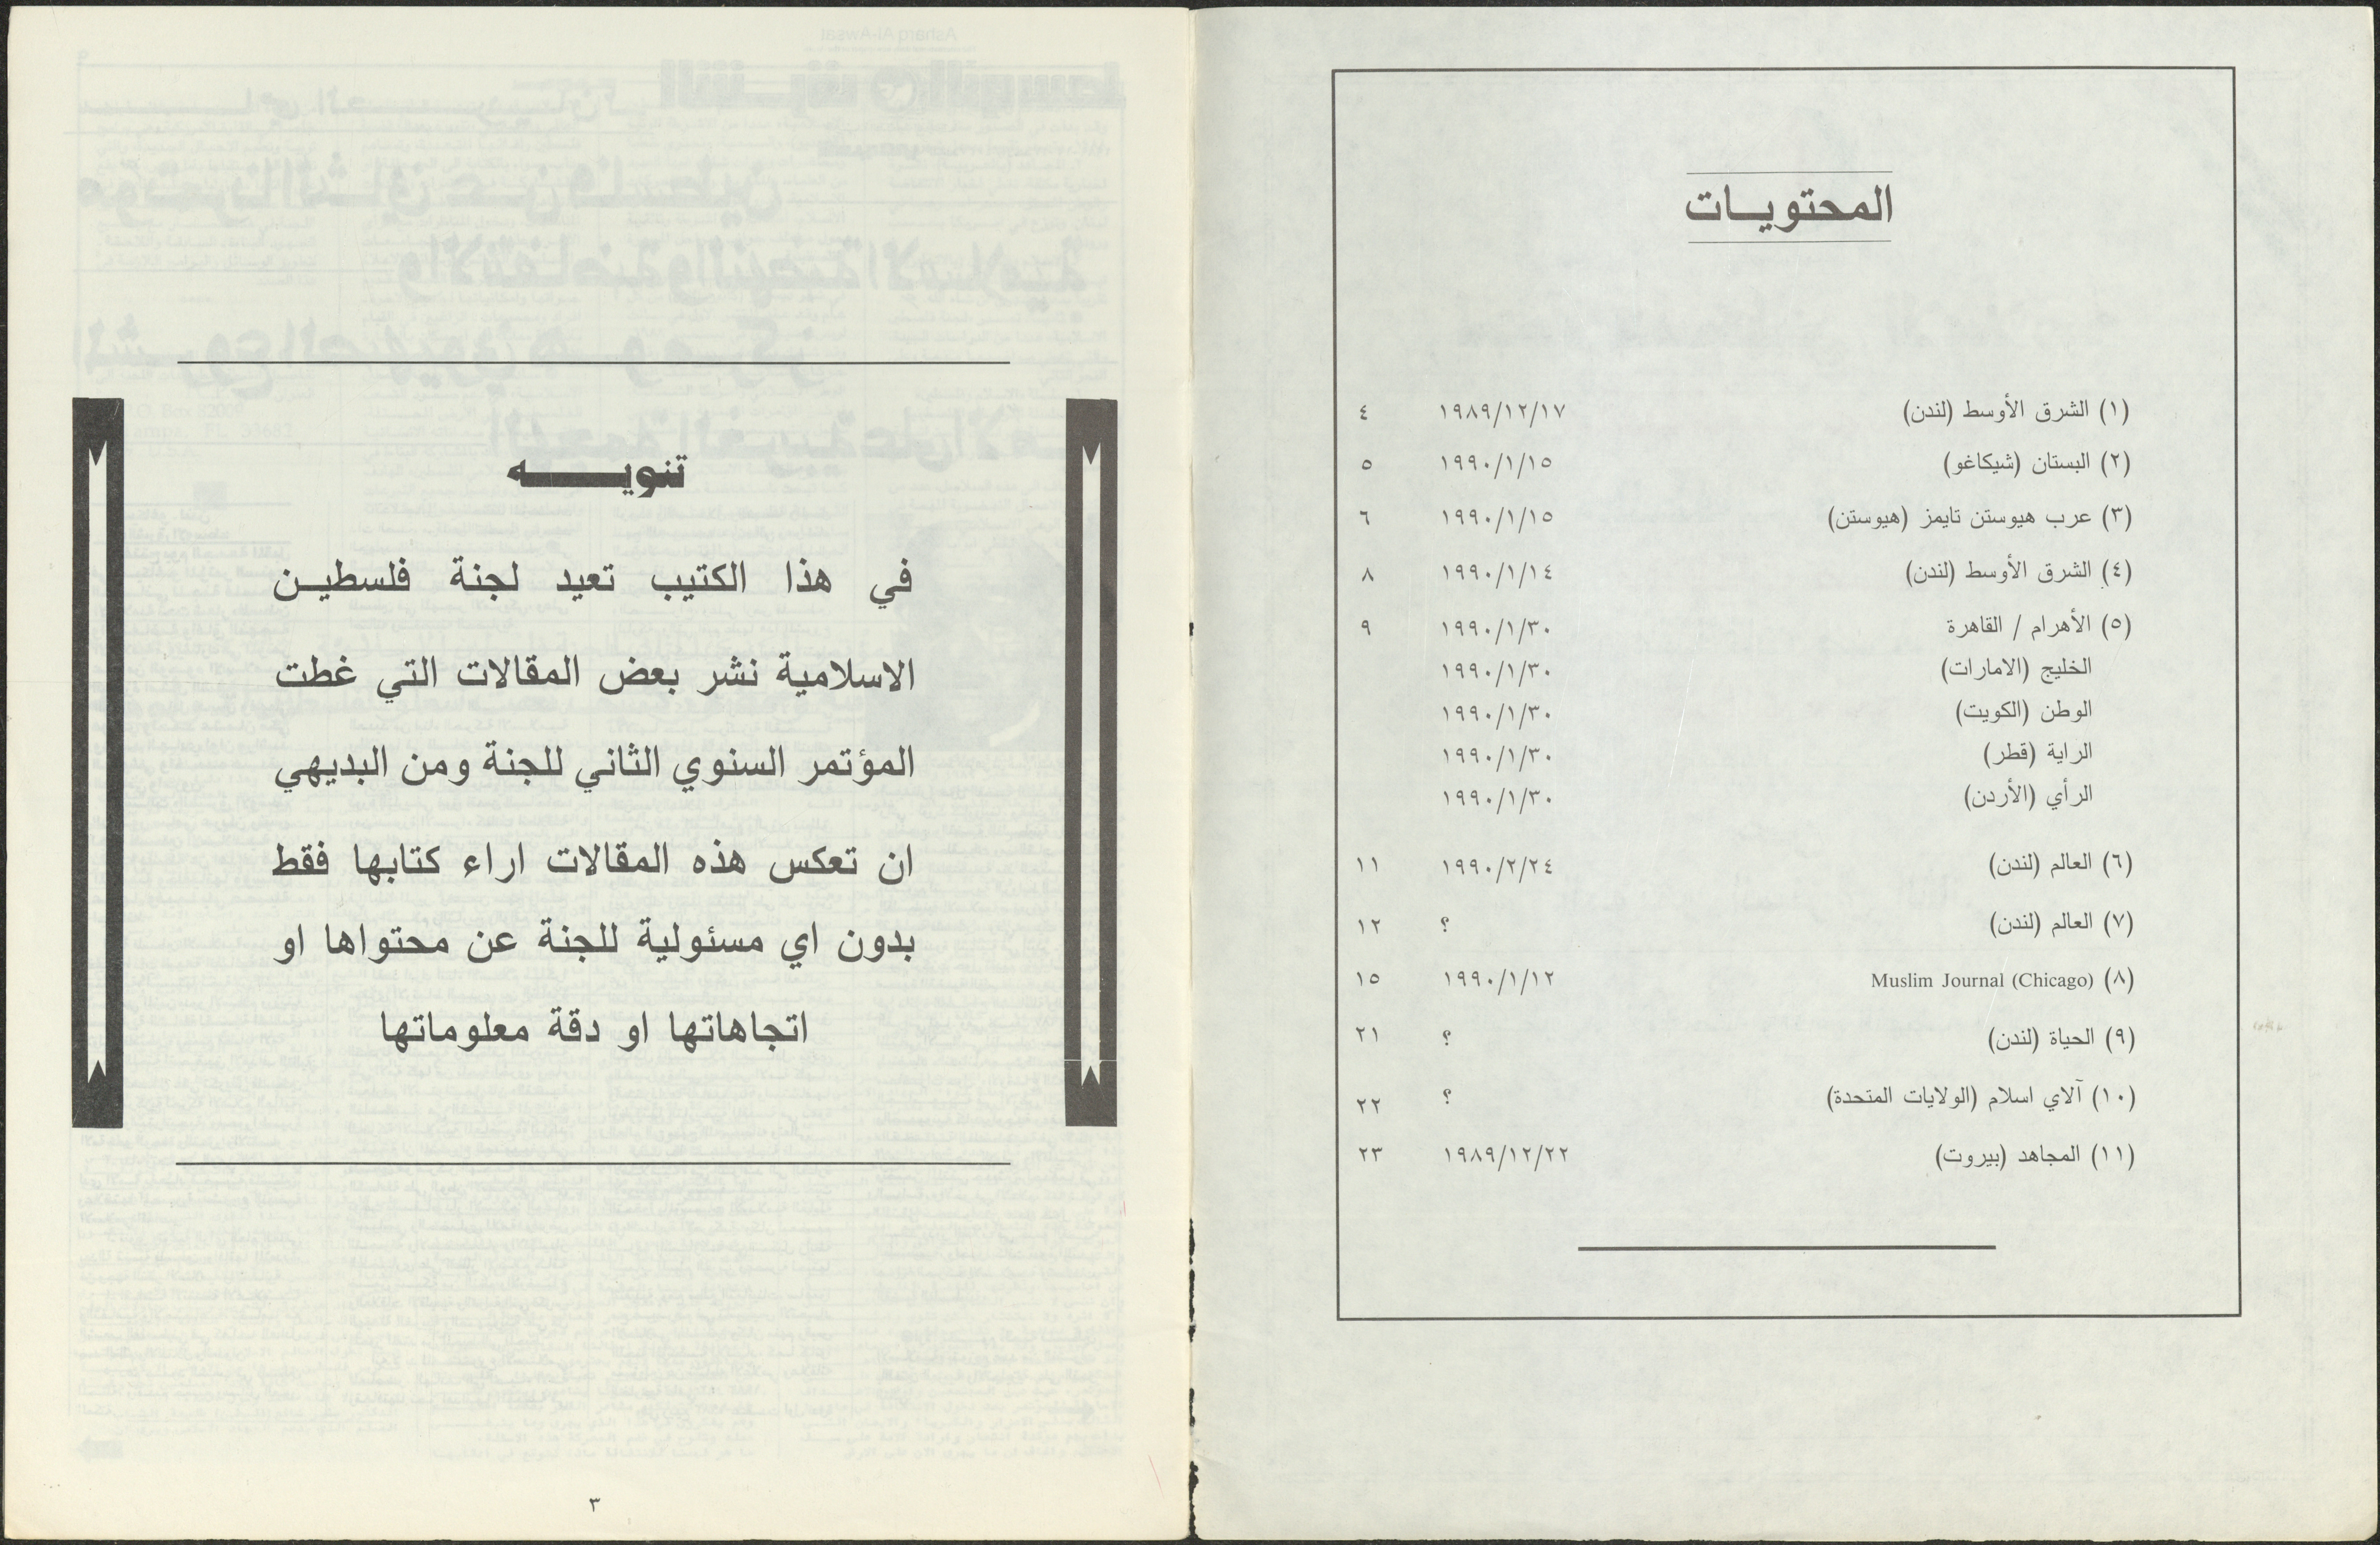 المحتويــات
(١) الشرق الأوسط (لندن) ١٩٨٩/١٢/١٧ ٤
(٢) البستان (شيكاغو) ١٩٩٠/١/١٥ ٥
(٣) عرب هيوستن تايمز (هيوستن) ١٩٩٠/١/١٥ ٦
(٤) الشرق الأوسط (لندن) ١٩٩٠/١/١٤ ٨
(٥) الأهرام / القاهرة ١٩٩٠/١/٣٠ ٩
الخليج (الامارات) ١٩٩٠/١/٣٠
الوطن (الكويت) ١٩٩٠/١/٣٠
الراية (قطر) ١٩٩٠/١/٣٠
الرأي (الأردن) ١٩٩٠/١/٣٠
(٦) العالم (لندن) ١٩٩٠/٢/٢٤ ١١
(٧) العالم (لندن) ؟ ١٢
(٨) Muslim Journal (Chicago) ١٩٩٠/١/١٢ ١٥
(٩) الحياة (لندن) ؟ ٢١
(١٠) آلاي اسلام (الولايات المتحدة) ؟ ٢٢
(١١) المجاهد (بيروت) ١٩٨٩/١٢/٢٢ ٢٣
تنويــــــه
في هذا الكتيب تعيد لجنة فلسطيــن
الاسلامية نشر بعض المقالات التي غطت
المؤتمر السنوي الثاني للجنة ومن البديهي
ان تعكس هذه المقالات اراء كتابها فقط
بدون اي مسئولية للجنة عن محتواها او
اتجاهاتها او دقة معلوماتها
٣